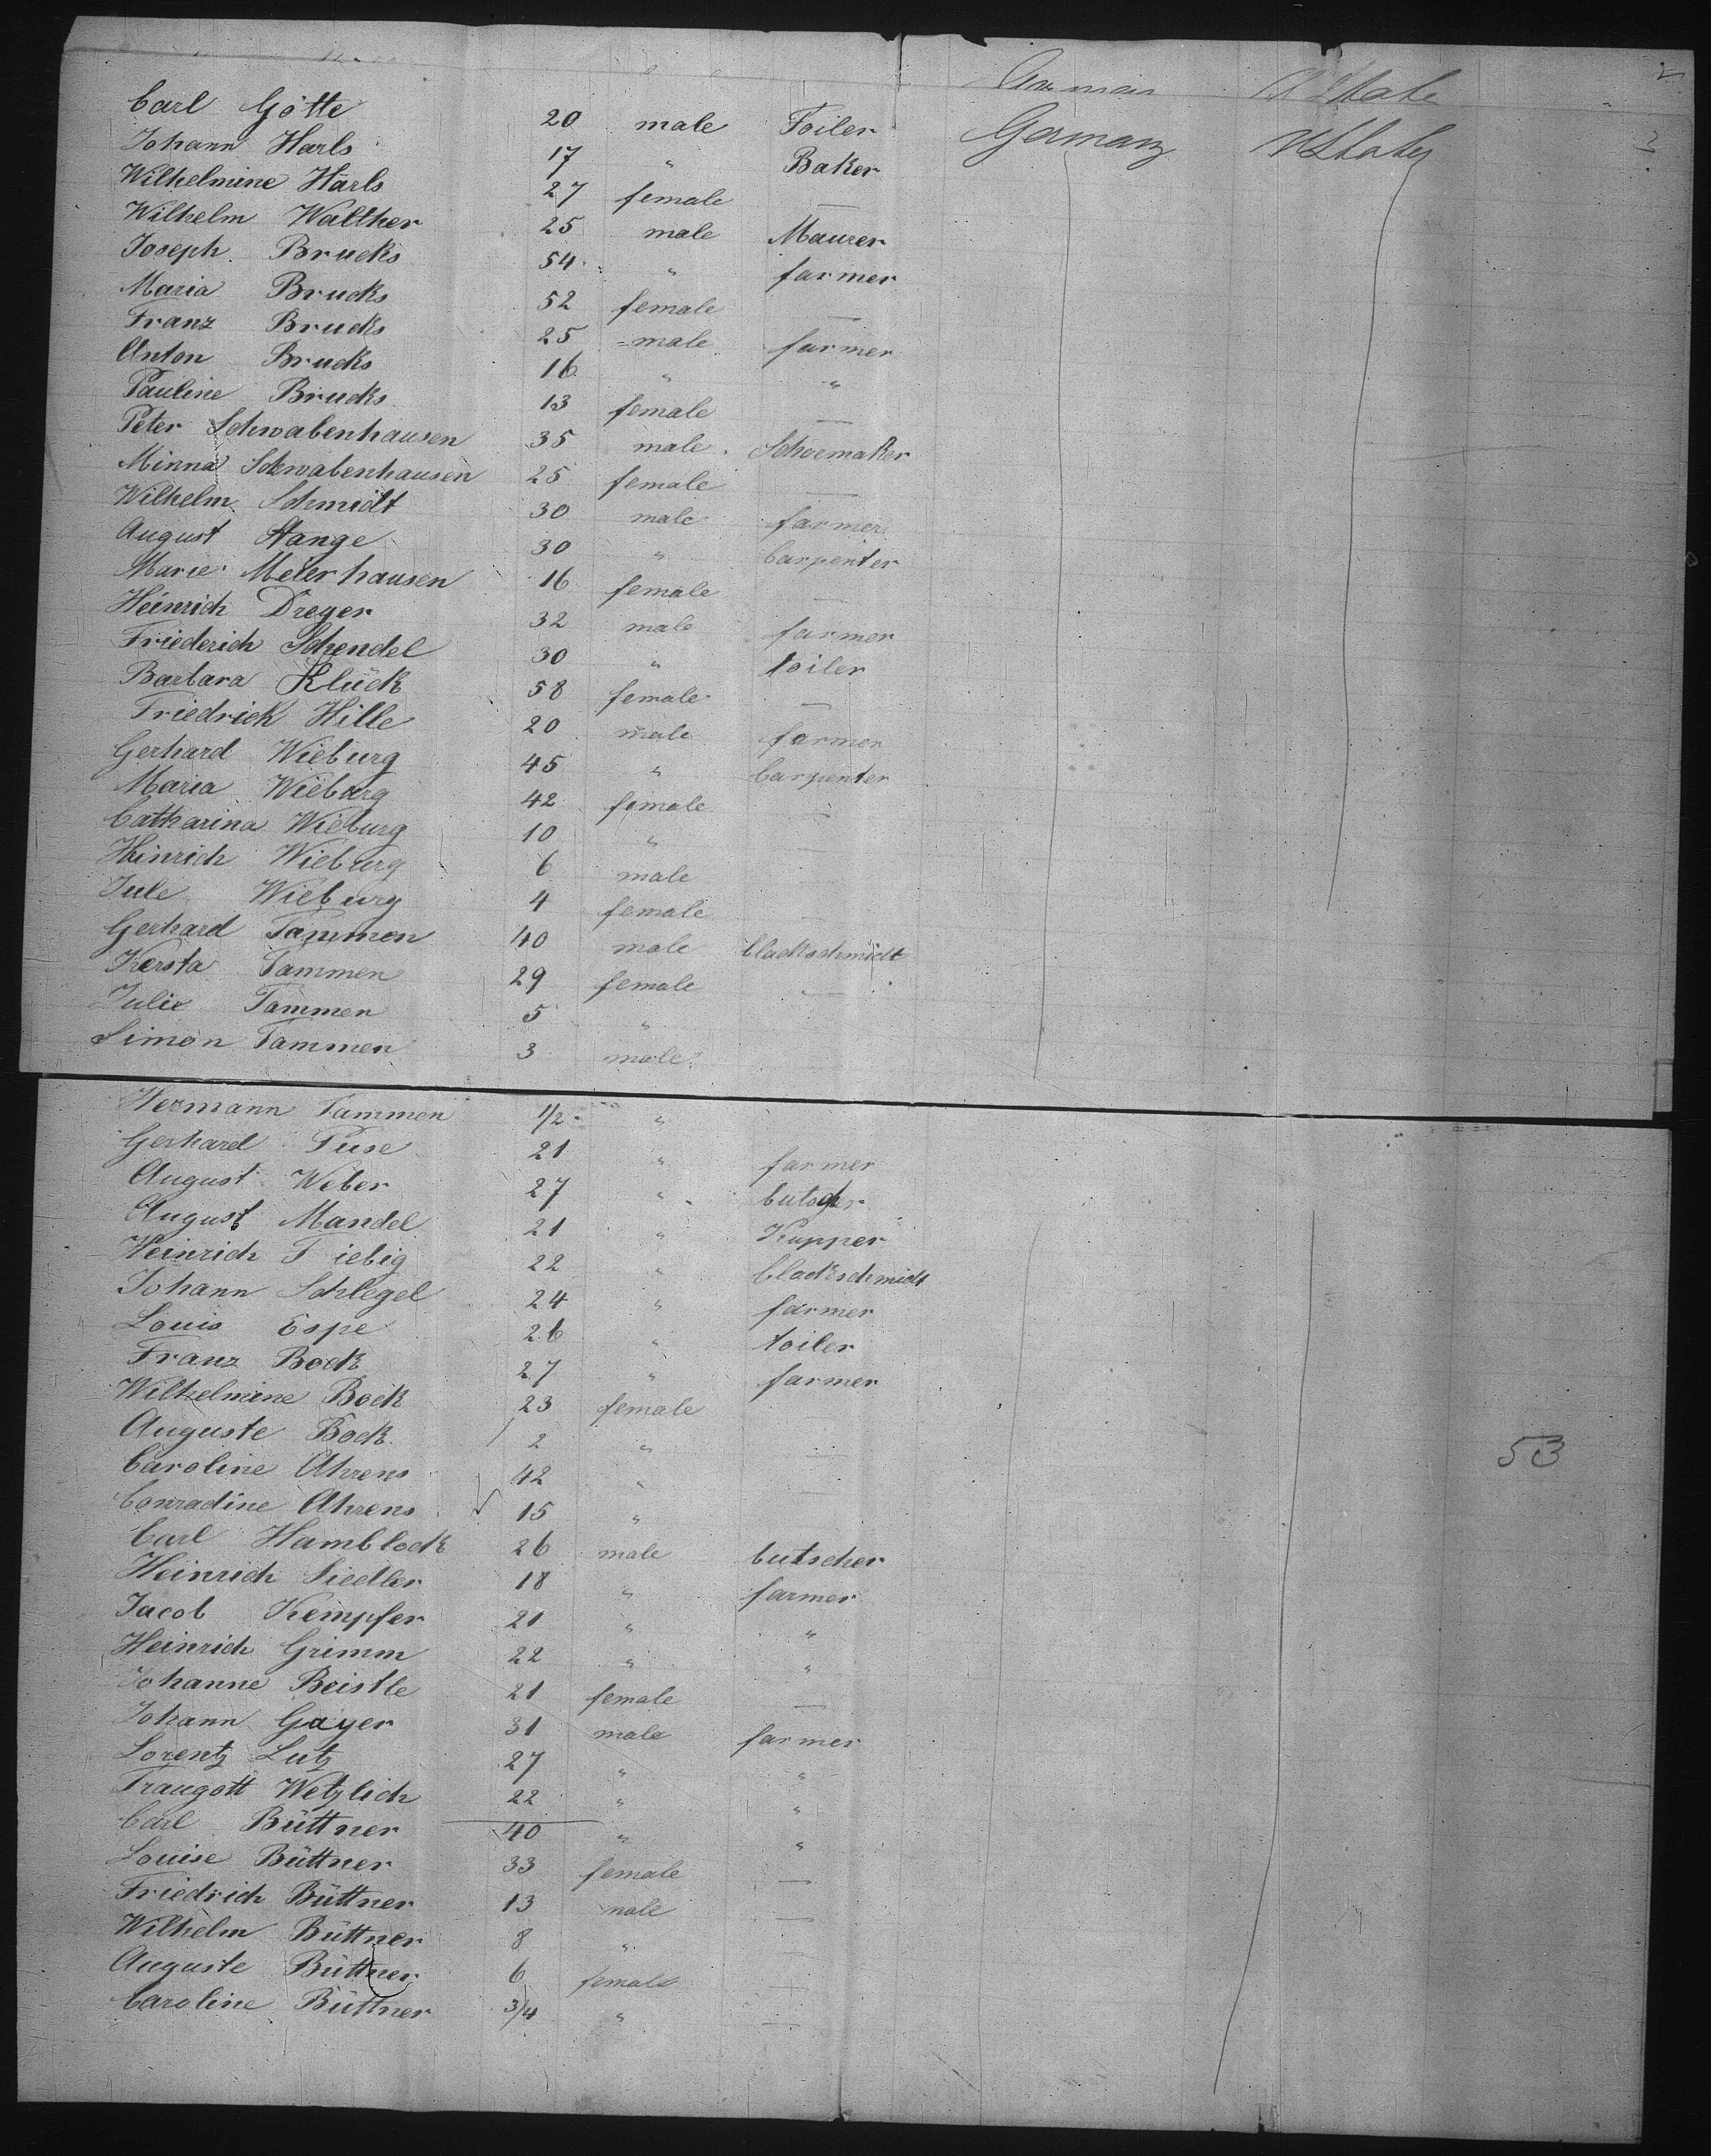 Carl Götte 20 male Toiler Germany UStates
Johann Harls 17 " Baker
Wilhelmine Harls 27 female —
Wilhelm Walther 25 male Maurer
Joseph Brucks 54 " farmer
Maria Brucks 52 female —
Franz Brucks 25 male farmer
Anton Brucks 16 " "
Pauline Brucks 13 female —
Peter Schwabenhausen 35 male Schoemaker
Minna Schwabenhausen 25 female —
Wilhelm Schmidt 30 male farmer
August Stange 30 " Carpenter
Marie Meierhausen 16 female —
Heinrich Dreyer 32 male farmer
Friederich Schendel 30 " toiler
Barbara Klück 58 female —
Friedrich Hille 20 male farmer
Gerhard Wieburg 45 " Carpenter
Maria Wieburg 42 female —
Catharina Wieburg 10 " —
Heinrich Wieburg 6 male
Jule Wieburg 4 female —
Gerhard Tammen 40 male blackschmidt
Kersta Tammen 29 female —
Julie Tammen 5 "
Simon Tammen 3 male
Hermann Tammen 1/2 "
Gerhard Puse 21 " farmer
August Weber 27 " butscher
August Mandel 21 " Kupper
Heinrich Fiebig 22 " blackschmidt
Johann Schlegel 24 " farmer
Louis Espe 26 " toiler
Franz Bock 27 " farmer
Wilhelmine Bock 23 female —
Auguste Bock 2 " —
Caroline Ahrens 42 " — 53
Conradine Ahrens 15 "
Carl Hamblock 26 male butscher
Heinrich Siedler 18 " farmer
Jacob Kempfer 21 " "
Heinrich Grimm 22 " "
Johanne Beistle 21 female —
Johann Gayer 31 male farmer
Lorentz Lutz 27 " "
Traugott Wetzlich 22 " "
Carl Büttner 40 " "
Louise Büttner 33 female —
Friedrich Büttner 13 male —
Wilhelm Büttner 8 " —
Auguste Büttner 6 female —
Caroline Büttner 3/4 " —